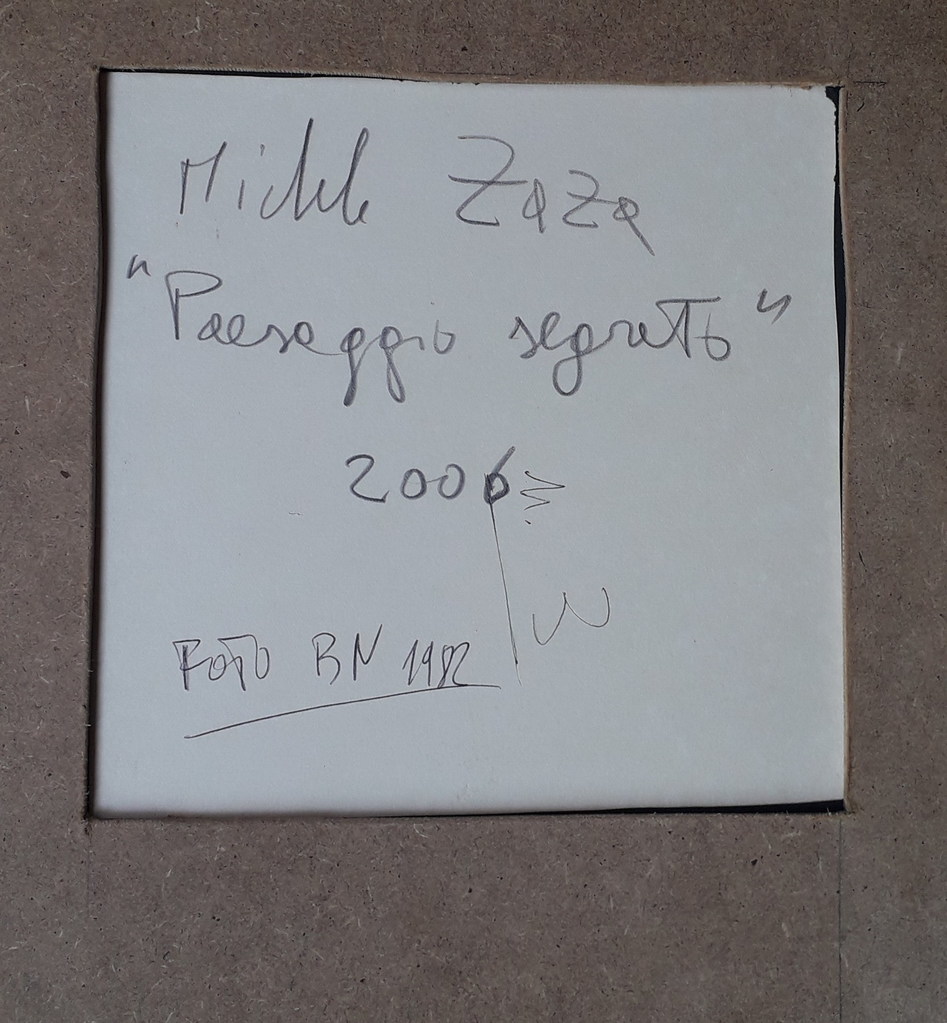 Michele Zaza
"Paesaggio segreto"
2006
FOTO BN 1982